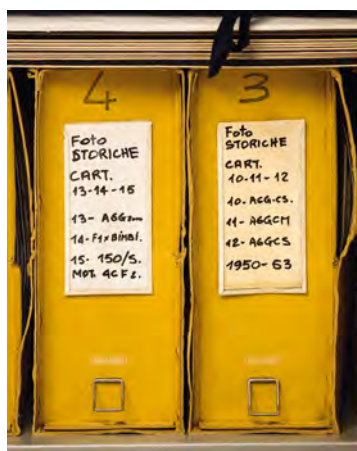 4
Foto
STORICHE
CART.
13-14-15
14-F1xBIMBI.
15- 150/S.
MOT. 4CF2.
3
Foto
STORICHE
CART.
10-11-12
10-A6G.CS.
11-A6GCM
12-A6GCS
1950-53